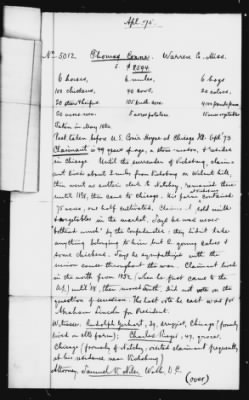 Apl. 75.
No 5012 Thomas Conner. Warren Co. Miss.
$2594.
6 horses, 6 mules, 6 hogs
100 chickens, 40 cows, 20 calves,
in May 1863.
Test. taken before U.S. Com'r Hoyne at Chicago Ill. Sept. 73
Claimant is 49 years of age, a stone mason, & resides
in Chicago. Until the surrender of Vicksburg, claim-
ant lived about 2 miles from Vicksburg on Walnut hill,
then went as outlier clk to Natchez, remained there
until 1865, then came to Chicago. His farm contained
75 acres, one half cultivated, Claim't sold milk
& vegetables in the market. Says he was never
"bothered much" by the Confederates; they didn't take
anything belonging to him but 2 young calves &
some chickens. Says he sympathized with the
union cause throughout the war. Claimant lived
in the north from 1852 (when he first came to the
U.S.) until 58, then moved south. Did not vote on the
question of secession. The last vote he cast was for
Abraham Lincoln for President.
Witnesses, Rudolph Gerhart, 34, druggist, Chicago (formerly
lived on farm); Charles 47, grocer,
Chicago (formerly of Natchez, visited claimant frequently
at his residence near Vicksburg)
Attorney, Samuel V. Niles, Wash. D.C.
(over)